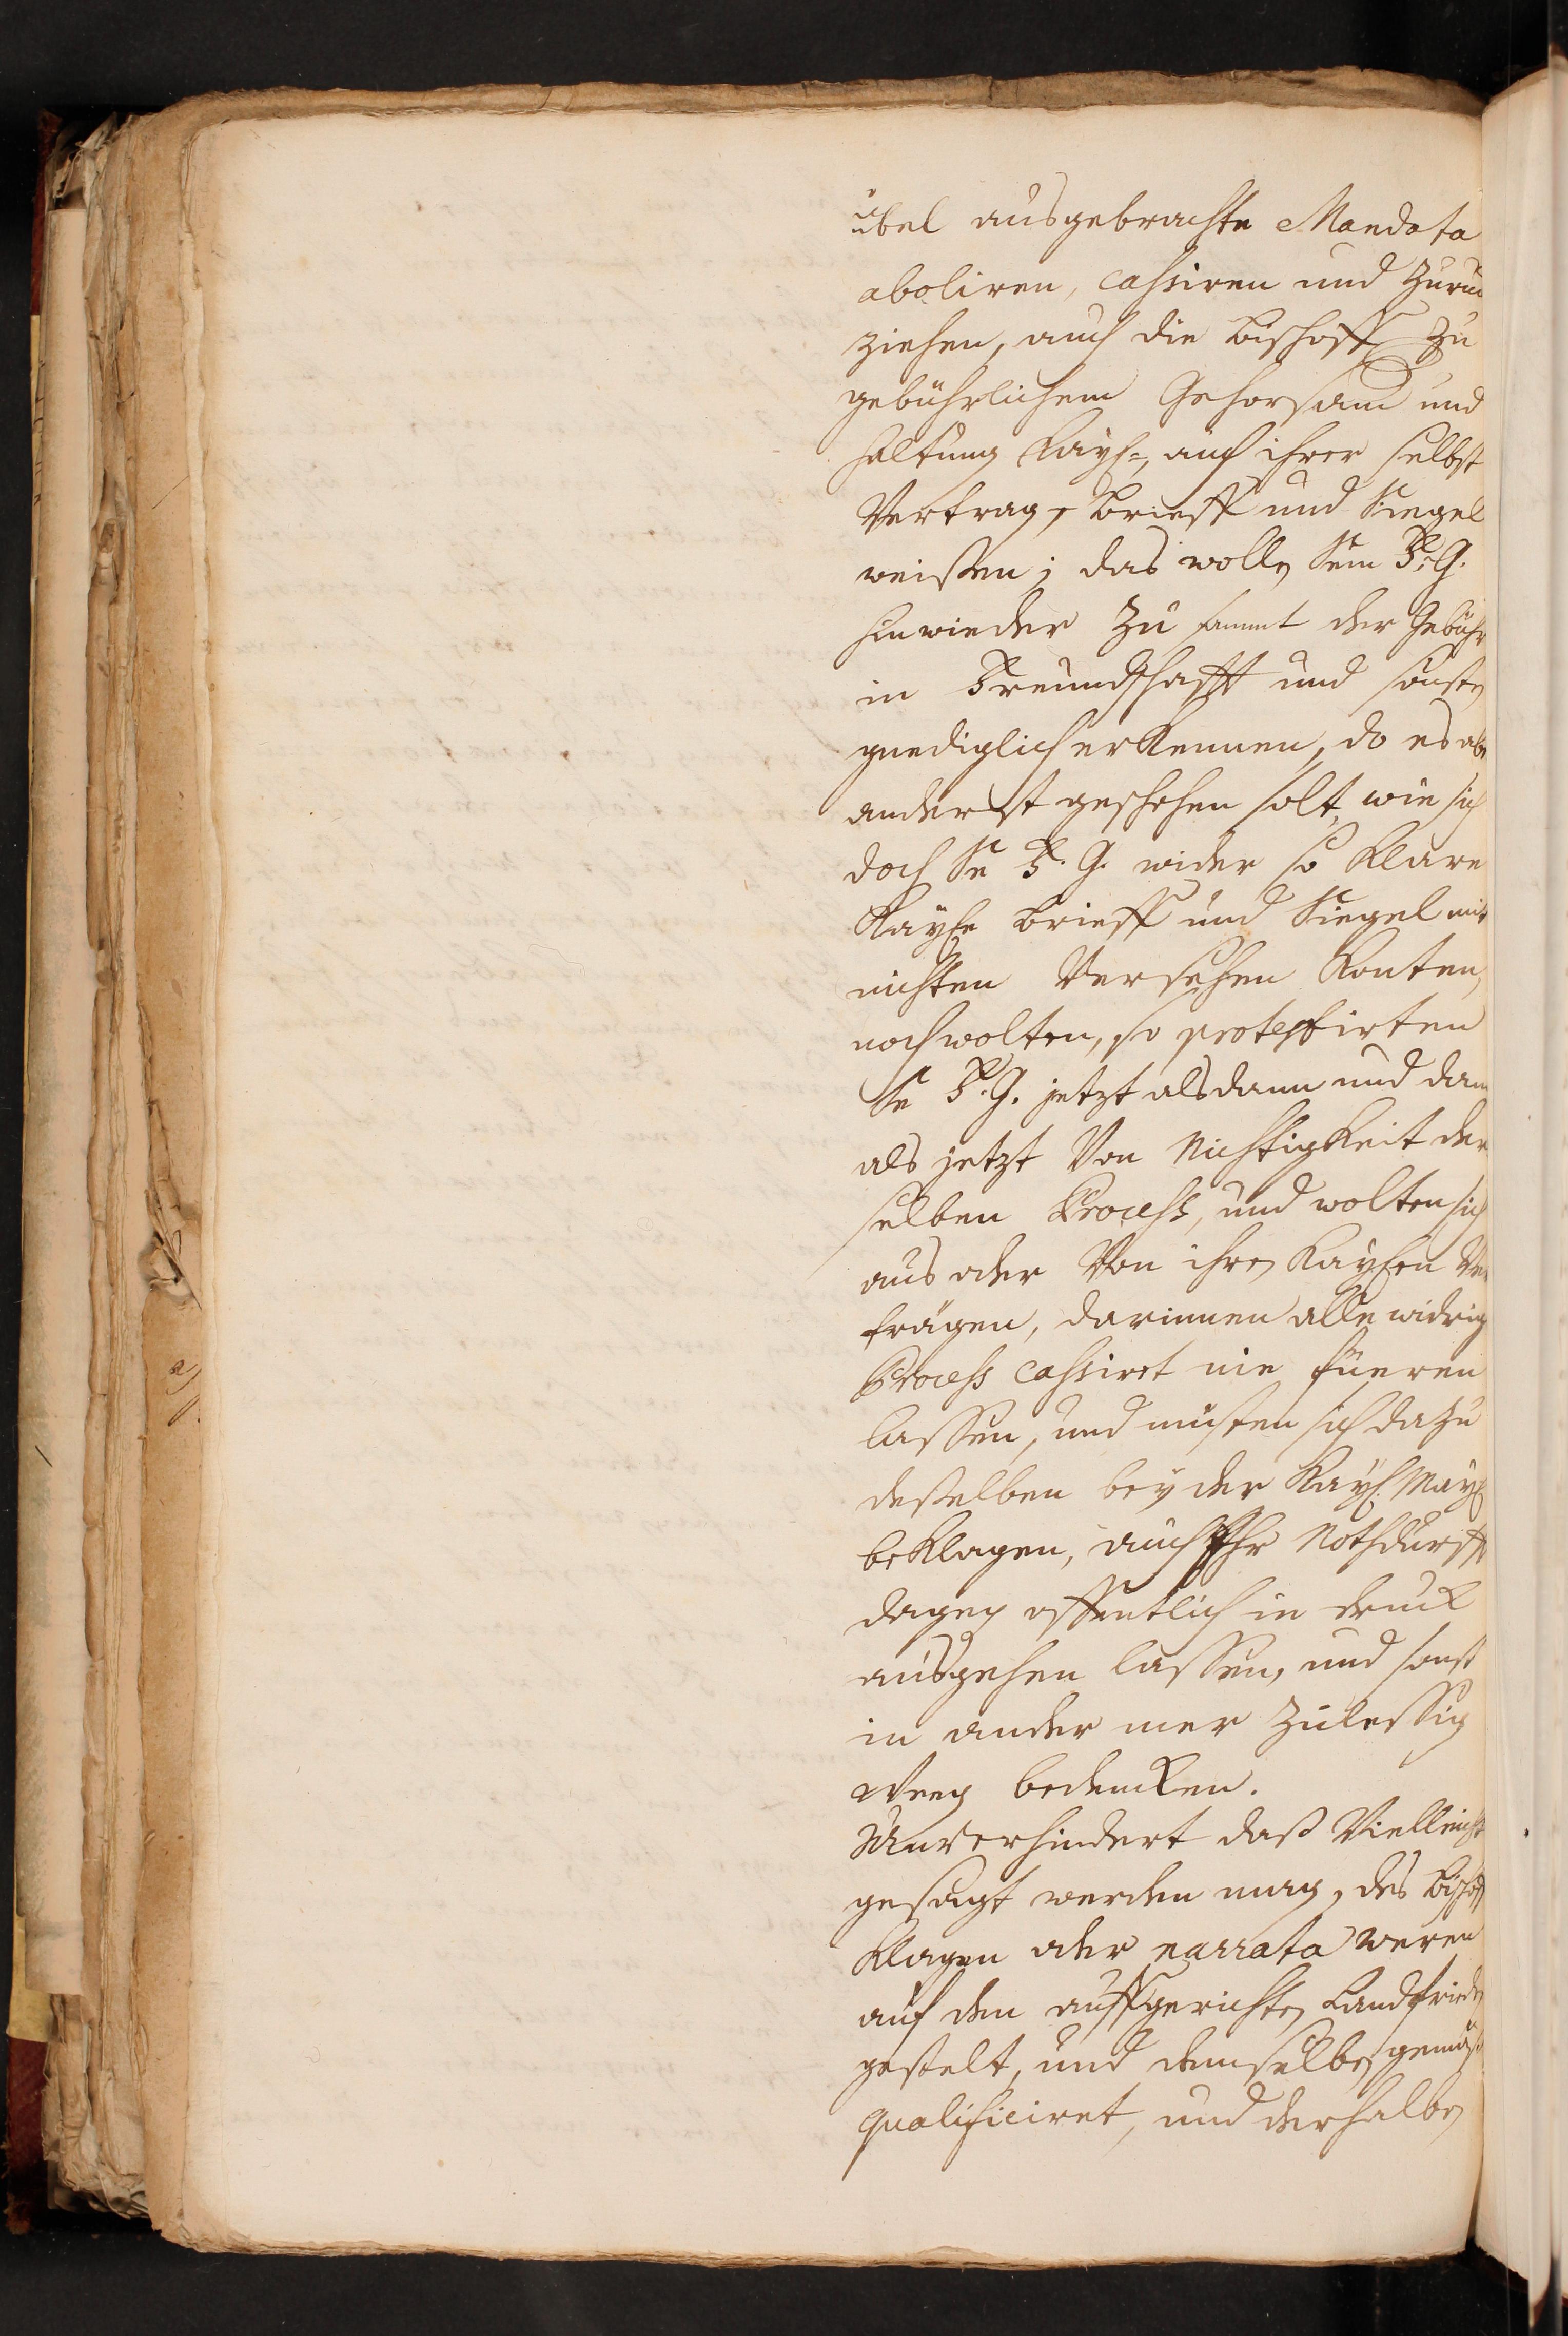 übel ausgebrachte Mandata
aboliren, cassiren und Zuruc
ziehen, auch die Bischoff zu
gebührlichem Gehorsam und
haltung Kayß=, auch ihrer selbst
Vertrag, Brieff und Siegel
weißen; das wollen Sein F. G.
hinwieder Zu sammt der Gebühr
in Freundschafft und sonsten
gnediglich erkennen, do es aber
anderst geschehen solt, wie sich
doch Se F. G. wider so klare
Kayße Brieff und Siegel mit
nichten Versehen konten,
noch wolten, so protestirten
Se F. G. jetzt alsdann und dann
als jetzt Von Nichtigkeit der
selben Process, und wolten sich
aus oder Von ihren Kayßen Ver
trägen, darinnen alle widrig
Process cassiret nie füeren
lassen, und müsten sich dazu
deßelben bey der Kayß. May.
beklagen, auch Ihr Nothdurfft
dagegen offentlich in druck
ausgehen lassen, und sonst
in ander mer Zulessig
Weeg bedencken.
Unverhindert daß Vielleicht
gesagt werden mag, des Bischoff
Klagen oder narrata weren
auf den auffgerichten Landfrieden
gestelt, und demselben gemäß
qualificiret, und derhalben